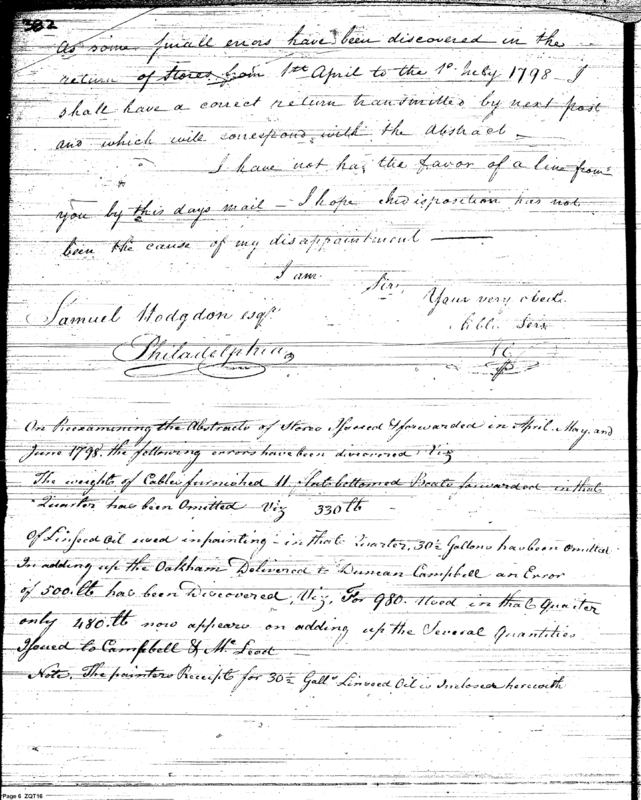 382
As some small errors have been discovered in the
return of Stores from 1st April to the 1st July 1798 I
shall have a correct return transmitted by next post
and which will correspond with the Abstract –
I have not had the favor of a line from
you by this days mail – I hope Indisposition has not
been the cause of my disappointment ——
I am
Sir,
Your very obedt.
Servt
Samuel Hodgdon esqr.
Philadelphia,
On Reexamining the Abstracts of Stores Issued & forwarded in April, May, and
June 1798. the following errors have been discovered Viz
The weights of Cables furnished 11 flat bottomed Boats forwarded in that
Quarter has been Omitted Viz 330 lb –
Of Linseed Oil used in painting – in that Quarter, 30½ Gallons has been Omitted
In adding up the Oakham Delivered to Duncan Campbell an Error
of 500. lb has been Discovered, Viz, For 980. Used in that Quarter
only 480. lb now appears on adding up the Several Quantities
Issued to Campbell & Mc. Leod —
Note. The painters Receipt for 30½ Galls Linseed Oil is Inclosed herewith
Page 6 ZQT16